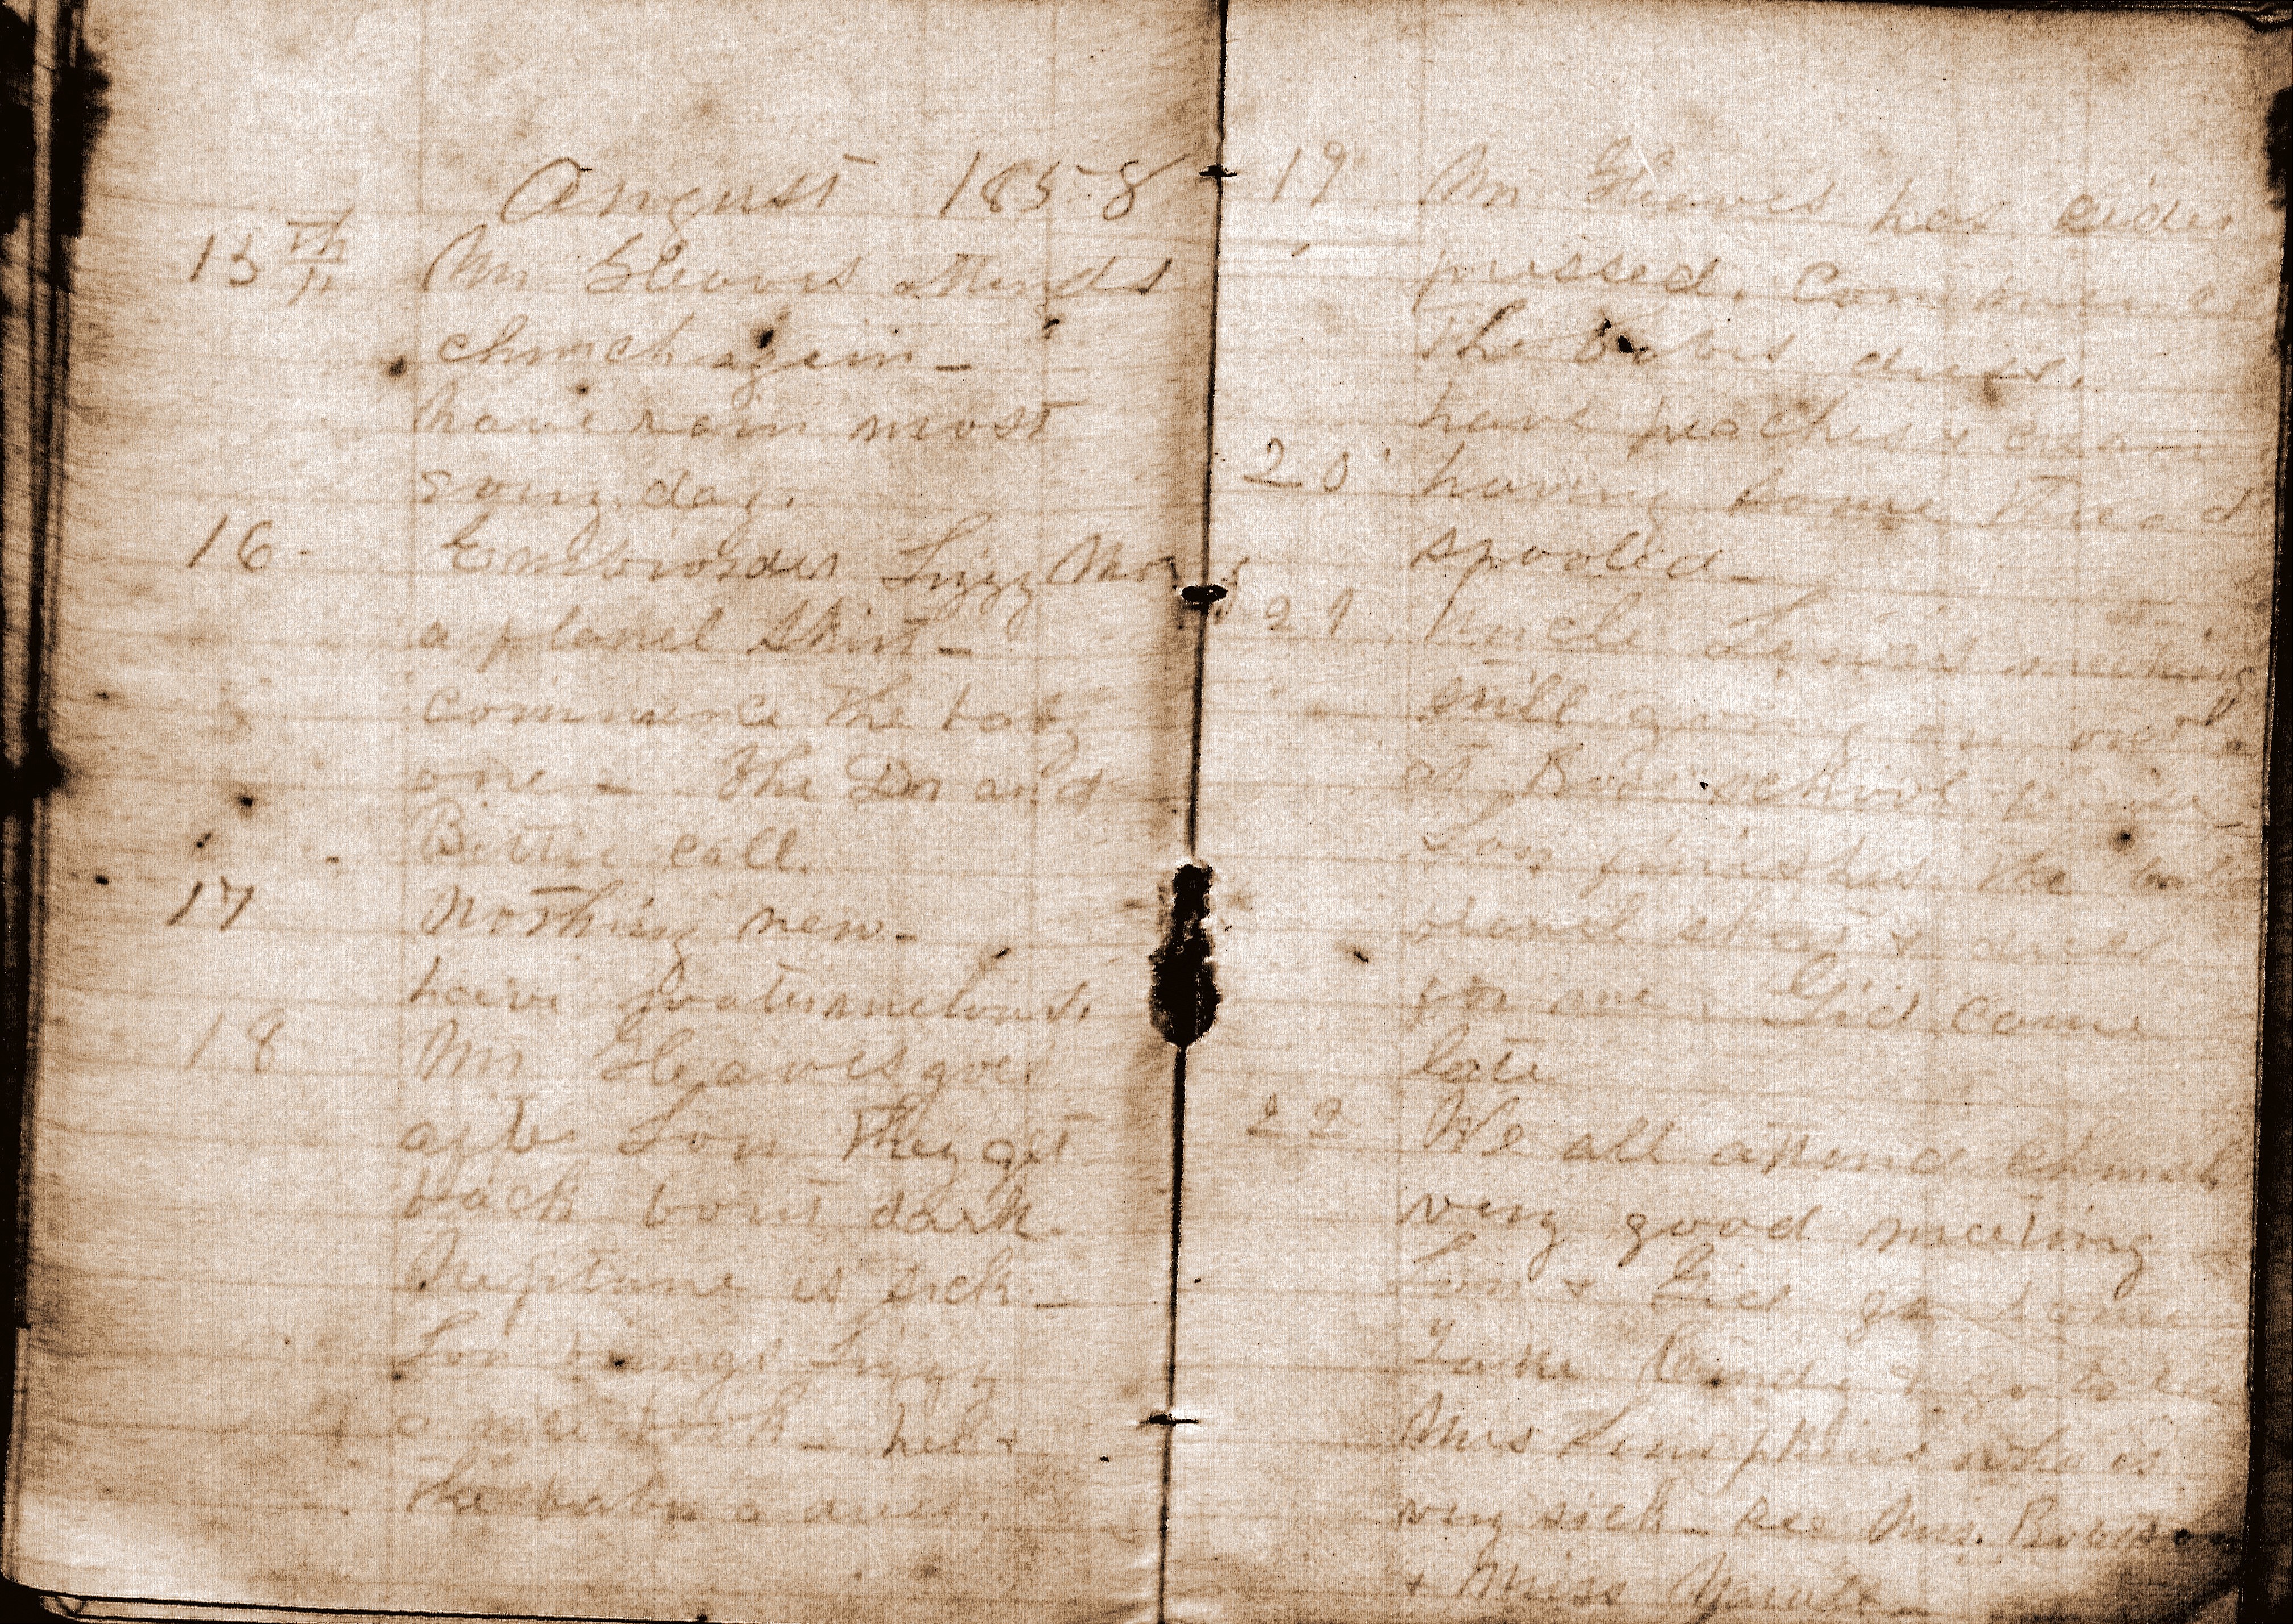 August 1858
15th Mr Gleaves attends
church again -
have rain most
every day.
16 - Embroider Lizzy
a flanel skirt -
commence the baby
one - The Dr and
Bettie call.
17 Nothing new -
have watermelons.
18 Mr Gleaves goes
after Lou They get
back bout dark.
Neptune is sick -
Lou brings Lizzy
a nice book - her &
the babe a dress.
19 Mr Gleaves has cider
pressed. Commence
the babes dress.
have peaches & cream
20 having some thread
spooled -
21 Uncle meeting
still going on over
at school house -
Lou finishes the
& dress
for me. Gid came
late
22 We all attend church
very good meeting
Lou & Gid go home
I take & go to see
Mrs Simpkins who is
very sick - see Mrs.
& Miss